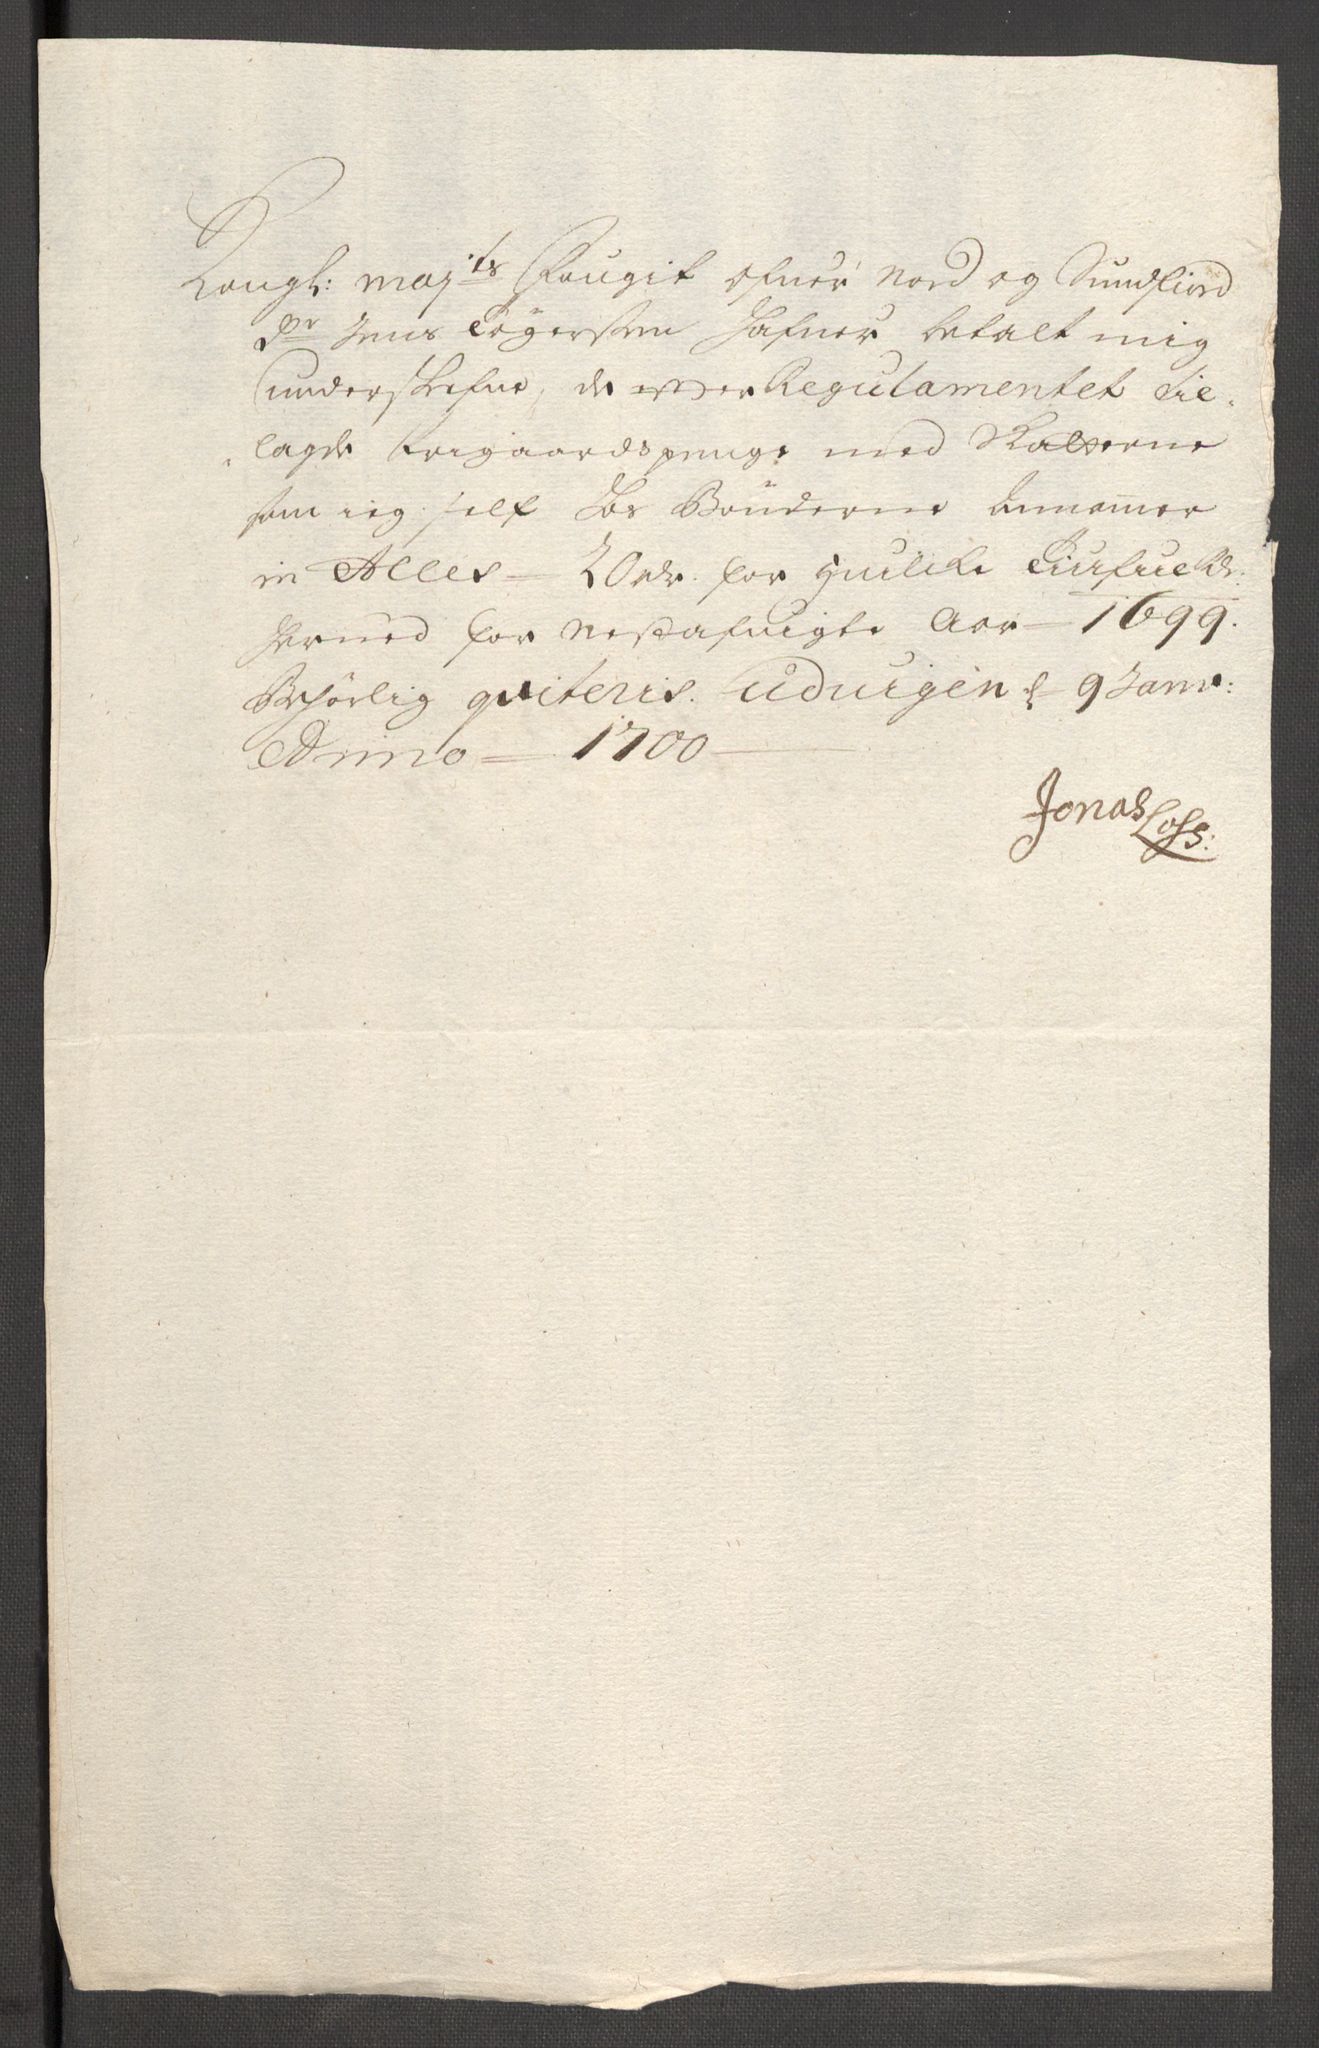 Kongl: mayts Fougit ofuer Nord og Sundfiord
Sr Jens Tögersen hafuer betalt mig
underskrefne, de effter Regulamentet tie-
lagde frigaardspenge med Skatterne
som ieg self hos Bönderne annammer
in Alles — 20 rdr. for huilke Tiufue Rdr:
hermed for nestafuigte Aar — 1699.
Behörlig qviteris. Udvigen d 9 Janv:
Anno — 1700 —
Jonas Loss: